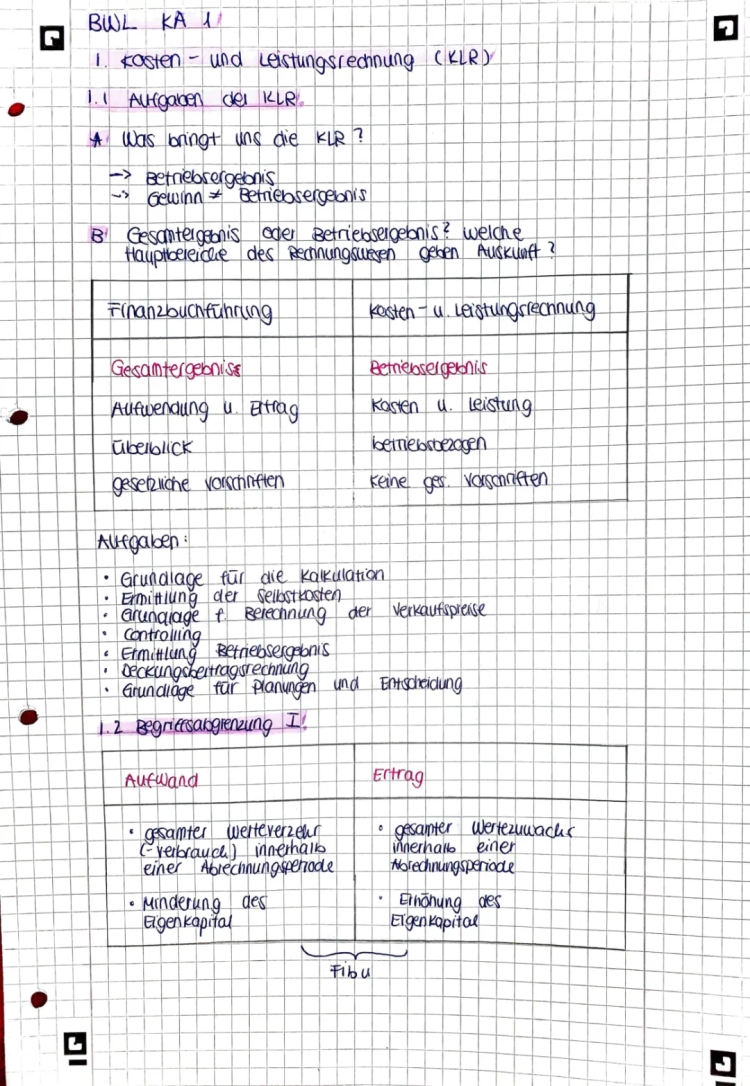 BWL KA 1
1. Kosten- und Leistungsrechnung (KLR)
1.1 Aufgaben der KLR
A Was bringt uns die KLR?
-> Betriebsergebnis
-> Gewinn ≠ Betriebsergebnis
B Gesamtergebnis oder Betriebsergebnis? welche
Hauptbereiche des Rechnungswesen geben Auskunft?
Finanzbuchführung
Kosten- u. Leistungsrechnung
Gesamtergebniss
Betriebsergebnis
Aufwendung u. Ertrag
Kosten u. Leistung
Überblick
betriebsbezogen
gesetzliche Vorschriften
Keine ges. Vorschriften
Aufgaben:
• Grundlage für die Kalkulation
• Ermittlung der Selbstkosten
• Grundlage f. Berechnung der Verkaufspreise
• Controlling
• Ermittlung Betriebsergebnis
• Deckungsbertragsrechnung
• Grundlage für Planungen und Entscheidung
1.2 Begriffsabgrenzung I
Aufwand
Ertrag
• gesamter Werteverzehr
(-verbrauch) innerhalb
einer Abrechnungsperiode
• Minderung des
Eigenkapital
• gesamter Wertezuwachs
innerhalb einer
Abrechnungsperiode
• Erhöhung des
Eigenkapital
Fibu